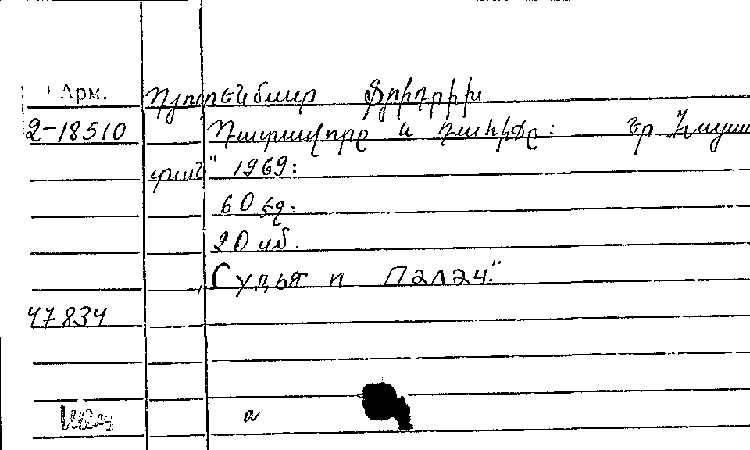 Арм. Դյուրենմատ Ֆրիդրիխ
2-18510 Դատավորը և դահիճը: Եր. Հայաս
տան" 1969:
60 էջ.
20 սմ.
"Судья и палач."
47834